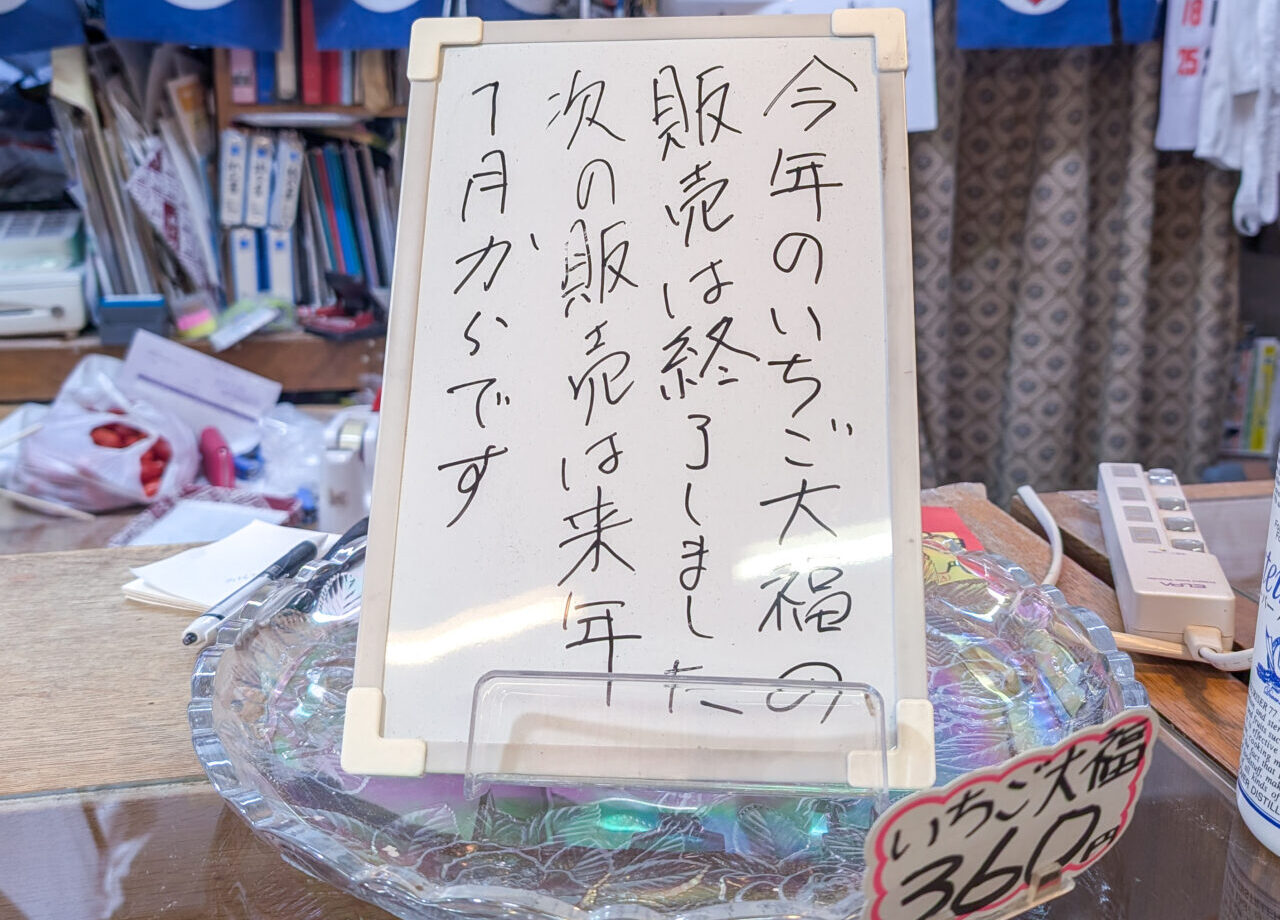 今年のいちご大福の
販売は終了しました
次の販売は来年
1月からです
いちご大福
360円
ELPA
18
25